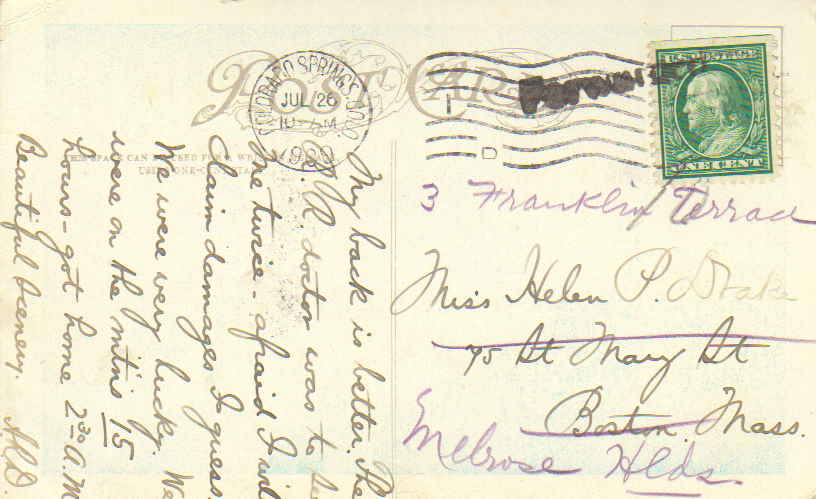 POST CARD
COLORADO SPRINGS COLO.
JUL 26
10 AM
1909
U.S. POSTAGE
ONE CENT
THIS SPACE CAN BE USED FOR A WRITTEN MESSAGE
USE ONE-CENT STAMP
My back is better. The
R.R. doctor was to see
me twice - afraid I will
Claim damages I guess.
We were very lucky. We
were on the mtns 15
hours - got home 2 30 A.M.
Beautiful Scenery.
3 Franklin Terrace
Miss Helen P. Drake
75 St Mary St
Boston, Mass.
Melrose Hlds.